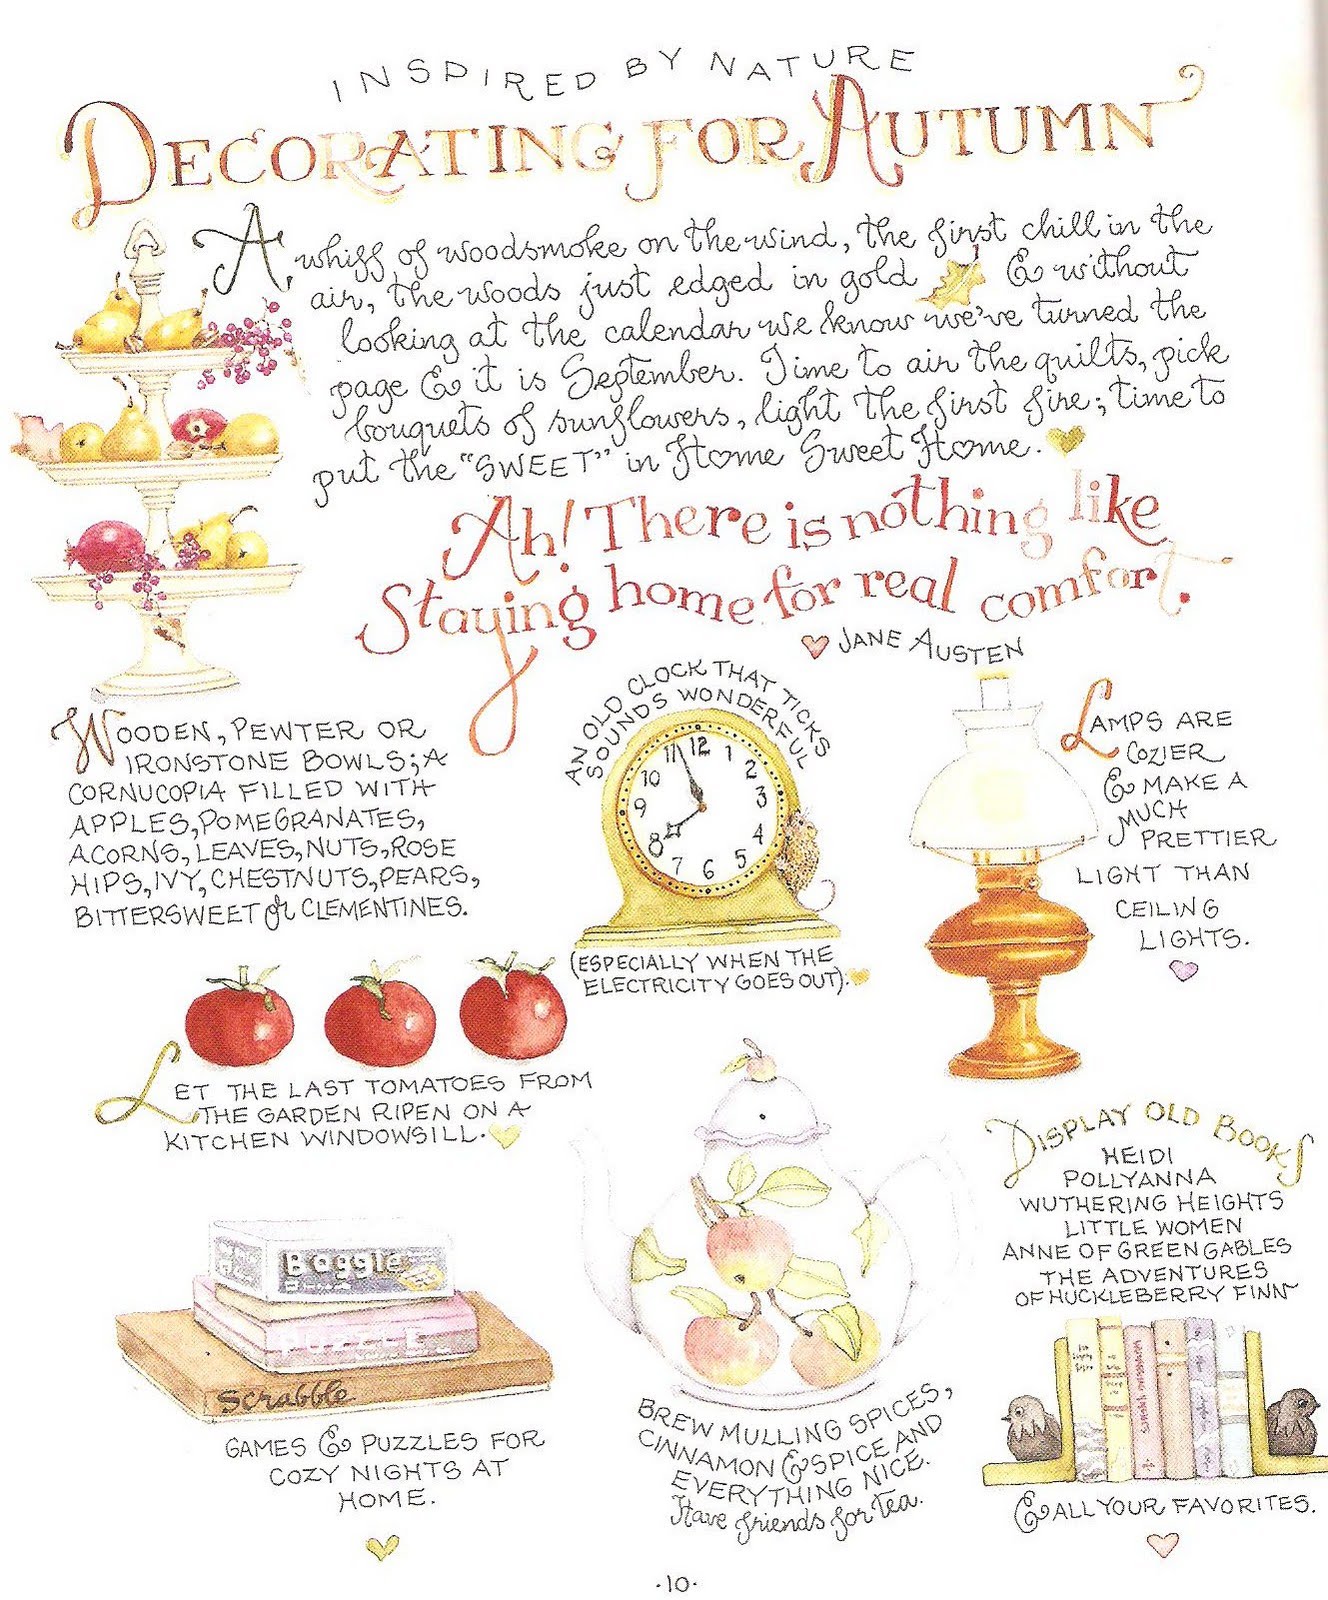 INSPIRED BY NATURE
DECORATING FOR AUTUMN
A whiff of woodsmoke on the wind, the first chill in the
air, the woods just edged in gold & without
looking at the calendar we know we've turned the
page & it is September. Time to air the quilts, pick
bouquets of sunflowers, light the first fire; time to
put the "SWEET" in Home Sweet Home.
Ah! There is nothing like
Staying home for real comfort.
JANE AUSTEN
WOODEN, PEWTER OR
IRONSTONE BOWLS; A
CORNUCOPIA FILLED WITH
APPLES, POMEGRANATES,
ACORNS, LEAVES, NUTS, ROSE
HIPS, IVY, CHESTNUTS, PEARS,
BITTERSWEET or CLEMENTINES.
AN OLD CLOCK THAT TICKS
SOUNDS WONDERFUL
11 12 1
10 2
9 3
8 4
7 6 5
(ESPECIALLY WHEN THE
ELECTRICITY GOES OUT).
LAMPS ARE
COZIER
& MAKE A
MUCH
PRETTIER
LIGHT THAN
CEILING
LIGHTS.
LET THE LAST TOMATOES FROM
THE GARDEN RIPEN ON A
KITCHEN WINDOWSILL.
Boggle
PUZZLE
Scrabble
GAMES & PUZZLES FOR
COZY NIGHTS AT
HOME.
BREW MULLING SPICES,
CINNAMON & SPICE AND
EVERYTHING NICE.
Have friends for tea.
DISPLAY OLD BOOKS
HEIDI
POLLYANNA
WUTHERING HEIGHTS
LITTLE WOMEN
ANNE OF GREEN GABLES
THE ADVENTURES
OF HUCKLEBERRY FINN
& ALL YOUR FAVORITES.
·10·